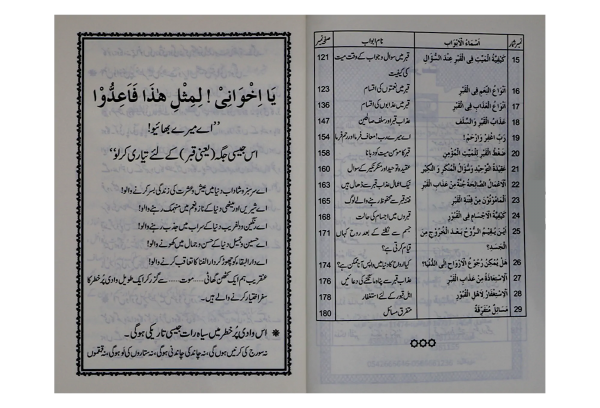 نمبر شمار اَسْمَاءُ الْاَبْوَاب نام ابواب صفحہ نمبر
15 كَيْفِيَّةُ الْمَيِّتِ فِي الْقَبْرِ عِنْدَ السُّؤَالِ قبر میں سوال و جواب کے وقت میت 121
کی کیفیت
16 اَنْوَاعُ النَّعِيمِ فِي الْقَبْرِ قبر میں نعمتوں کی اقسام 123
17 اَنْوَاعُ الْعَذَابِ فِي الْقَبْرِ قبر میں عذابوں کی اقسام 136
18 عَذَابُ الْقَبْرِ وَ السَّلَفُ عذاب قبر اور سلف صالحین 147
19 رَبِّ اغْفِرْ وَارْحَمْ! اے میرے رب! معاف فرما اور رحم فرما 154
20 ضَغْطُ الْقَبْرِ لِلْمَيِّتِ الْمُؤْمِنِ قبر کا مومن میت کو دبانا 158
21 عَقِيدَةُ التَّوْحِيدِ وَ سُؤَالُ الْمُنْكَرِ وَ النَّكِيرِ عقیدہ توحید اور منکر نکیر کے سوال 160
22 اَلْاَعْمَالُ الصَّالِحَةُ جُنَّةٌ مِنْ عَذَابِ الْقَبْرِ نیک اعمال عذاب قبر سے ڈھال ہیں 163
23 اَلْمَأْمُونُونَ مِنْ فِتْنَةِ الْقَبْرِ فتنہ قبر سے محفوظ رہنے والے لوگ 165
24 كَيْفِيَّةُ الْاَجْسَامِ فِي الْقُبُورِ قبروں میں اجسام کی حالت 168
25 اَيْنَ يُقِيمُ الرُّوحُ بَعْدَ الْخُرُوجِ مِنَ جسم سے نکلنے کے بعد روح کہاں 171
الْجَسَدِ؟ قیام کرتی ہے؟
26 هَلْ يُمْكِنُ رُجُوعُ الْاَرْوَاحِ اِلَى الدُّنْيَا؟ کیا ارواح کا دنیا میں واپس آنا ممکن ہے؟ 174
27 اَلْاِسْتِعَاذَةُ مِنْ عَذَابِ الْقَبْرِ عذاب قبر سے پناہ مانگنے کی دعائیں 176
28 اَلْاِسْتِغْفَارُ لِاَهْلِ الْقُبُورِ اہل قبور کے لئے استغفار 178
29 مَسَائِلُ مُتَفَرِّقَةٌ متفرق مسائل 180
يَا اِخْوَانِيْ ! لِمِثْلِ هٰذَا فَاَعِدُّوْا
’’اے میرے بھائیو!
اس جیسی جگہ (یعنی قبر) کے لئے تیاری کرلو‘‘
اے سرسبز و شاداب دنیا میں عیش و عشرت کی زندگی بسر کرنے والو!
اے شیریں اور میٹھی دنیا کے ناز و نعم میں منہمک رہنے والو!
اے رنگین و دلفریب دنیا کے سراب میں جذب رہنے والو!
اے حسین و جمیل دنیا کے حسن و جمال میں کھونے والو!
اے دار البقاء کو چھوڑ کر دار الفناء کا تعاقب کرنے والو!
عنقریب ہم ایک کٹھن گھاٹی ...... موت ...... سے گزر کر ایک طویل وادی پُر خطر کا
سفر اختیار کرنے والے ہیں۔
❋ اس وادی پُر خطر میں سیاہ رات جیسی تاریکی ہوگی۔
نہ سورج کی کرنیں ہوں گی، نہ چاند کی چاندنی ہوگی، نہ ستاروں کی لو ہوگی، نہ قمقموں